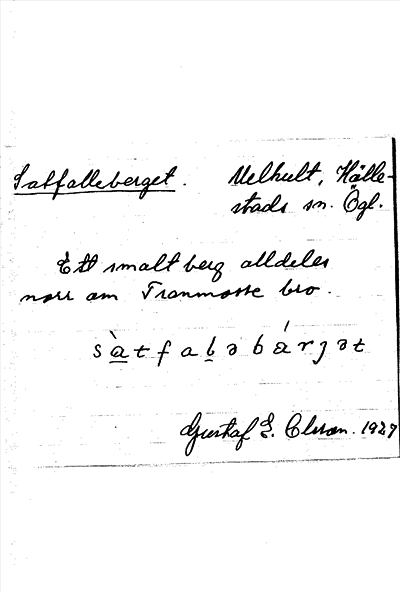 Satfalleberget. Uelhult, Hälle-
stads sn. Ögl.
Ett smalt berg alldeles
norr om Tranmosse bro.
Gustaf E. Olsson. 1927